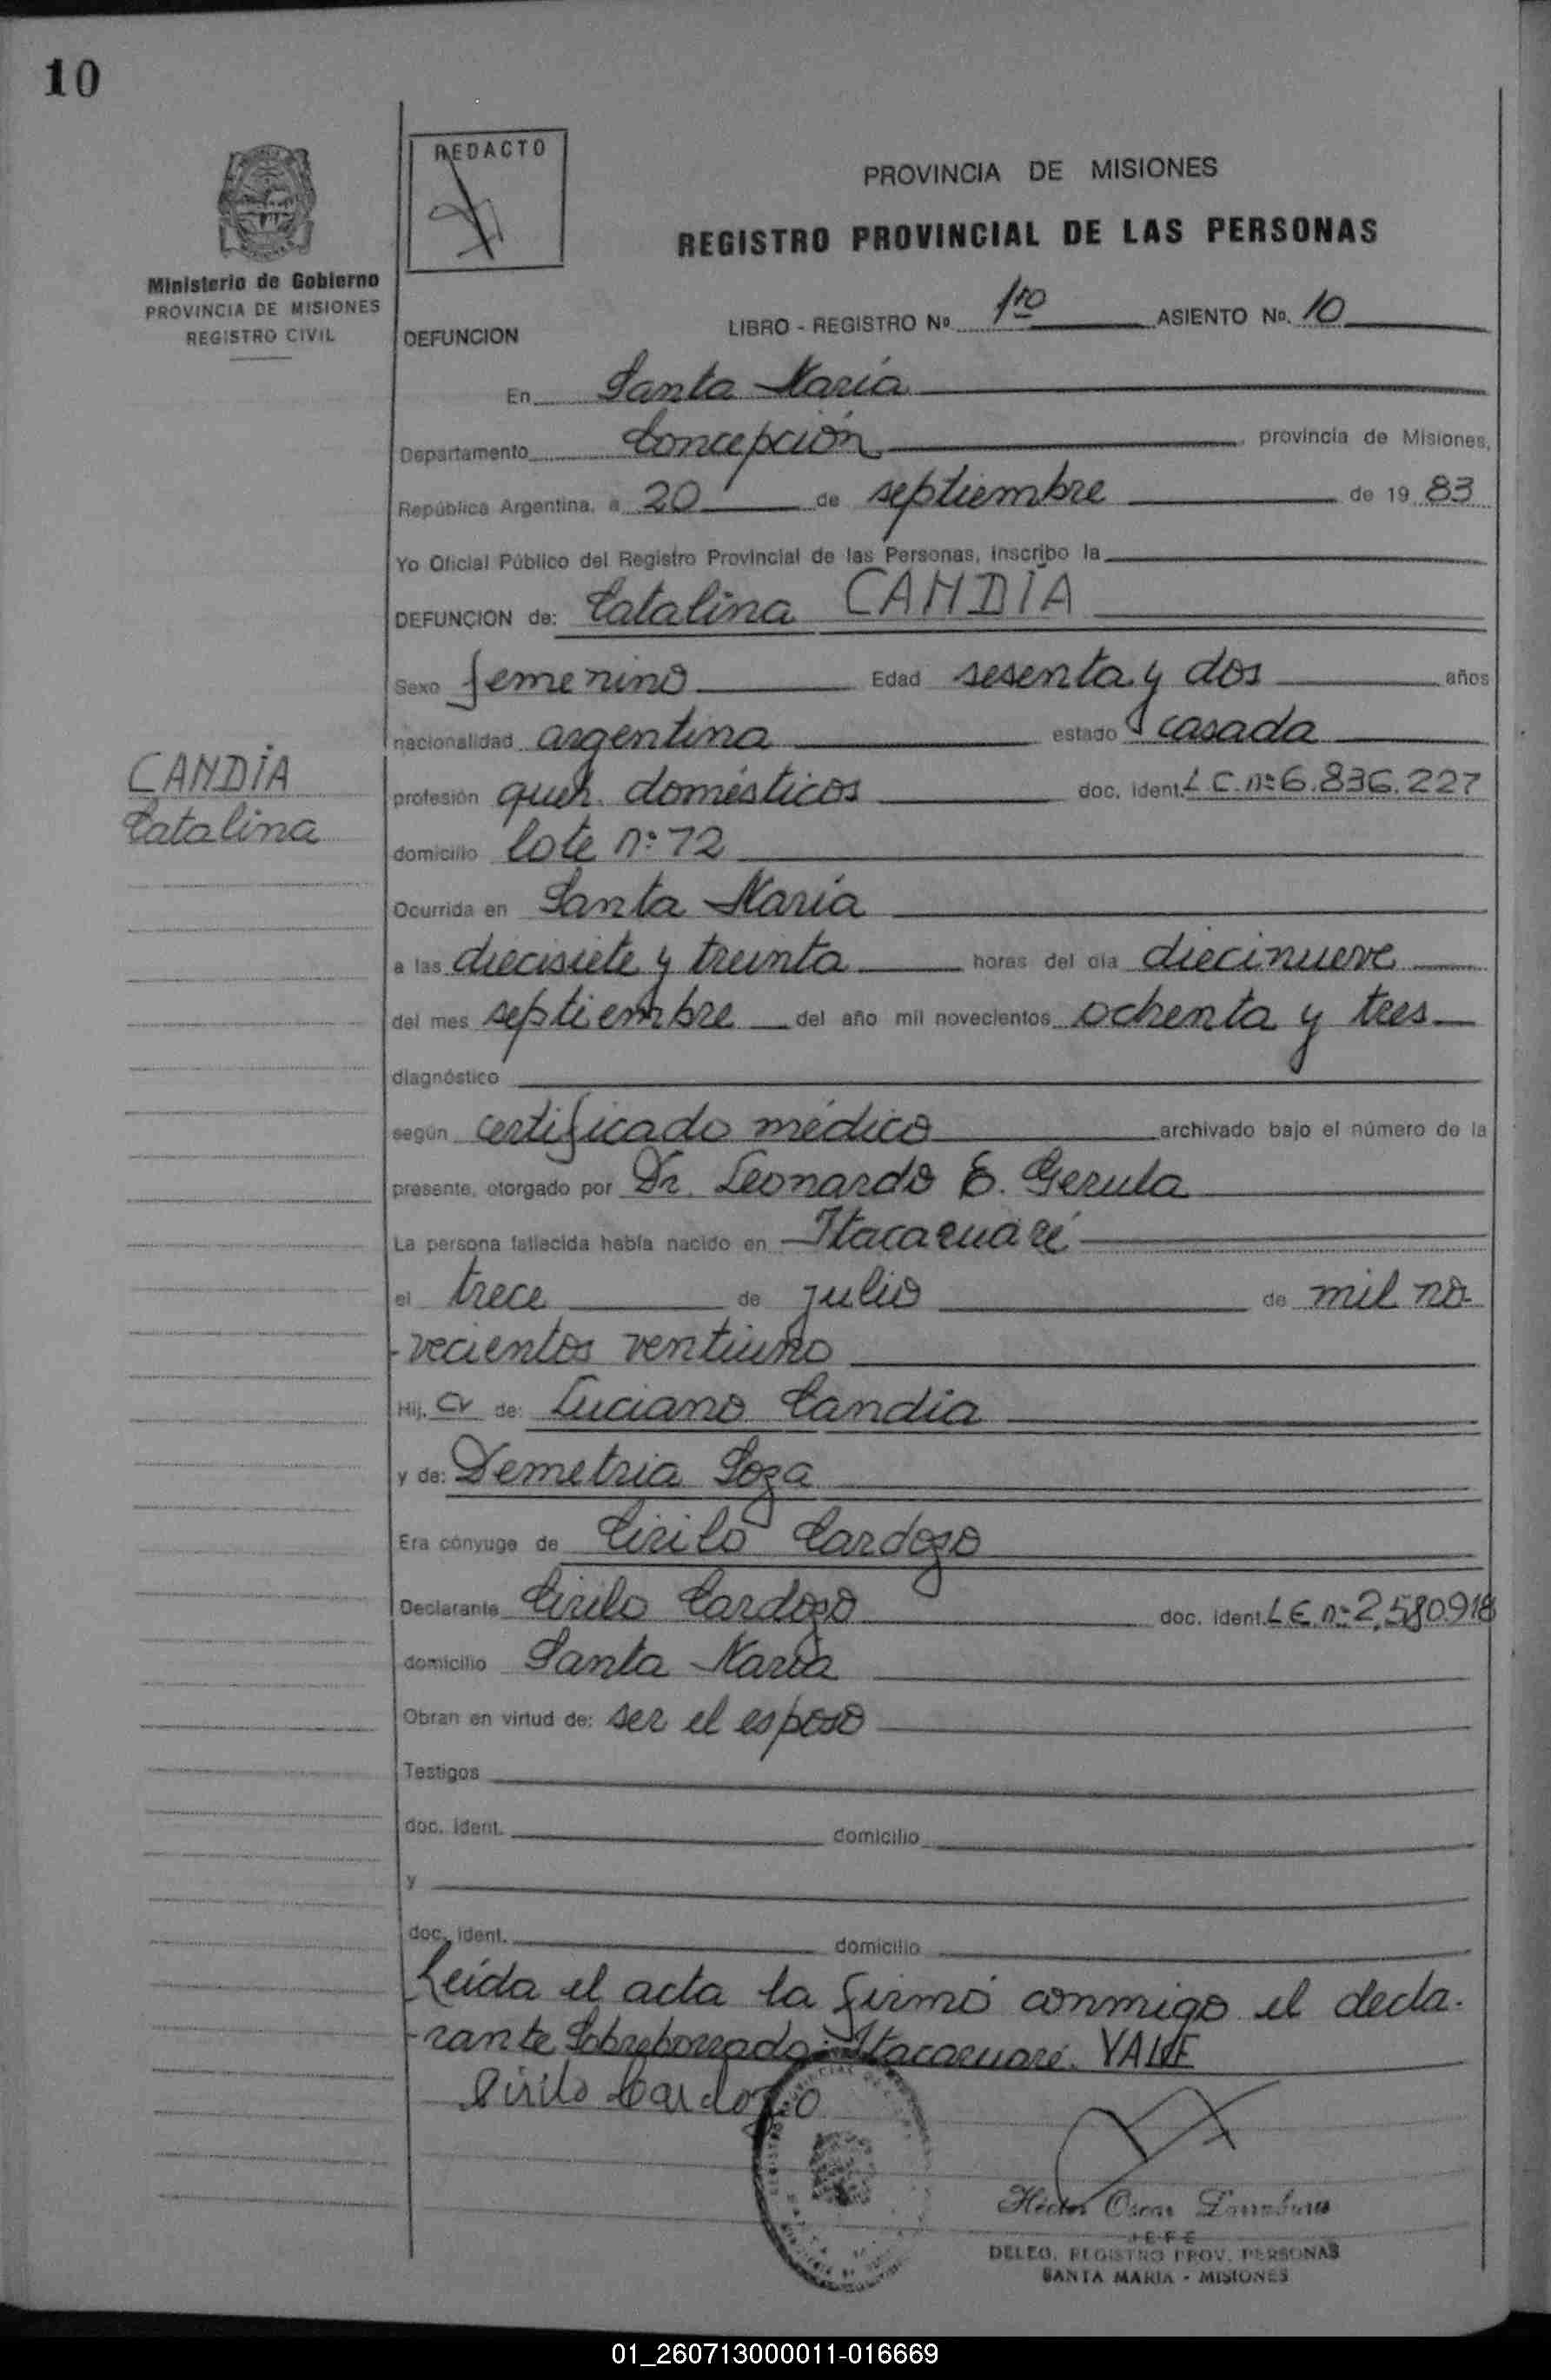 10
REDACTO
PROVINCIA DE MISIONES
REGISTRO PROVINCIAL DE LAS PERSONAS
Ministerio de Gobierno
PROVINCIA DE MISIONES
REGISTRO CIVIL
DEFUNCION
LIBRO - REGISTRO Nº 1ro ASIENTO No. 10
En Santa María
Departamento Concepción, provincia de Misiones,
República Argentina, a 20 de septiembre de 19 83
Yo Oficial Público del Registro Provincial de las Personas, inscribo la
DEFUNCION de: Catalina CANDIA
Sexo femenino Edad sesenta y dos años
nacionalidad argentina estado casada
CANDIA
Catalina
profesión queh. domésticos doc. ident. L C. nº 6.836.227
domicilio lote nº 72
Ocurrida en Santa María
a las diecisiete y treinta horas del día diecinueve
del mes septiembre del año mil novecientos ochenta y tres
diagnóstico
según certificado médico archivado bajo el número de la
presente, otorgado por Dr. Leonardo E. Gerula
La persona fallecida había nacido en Itacaruaré
el trece de julio de mil no-
-vecientos ventiuno
Hij. a de: Luciano Candia
y de: Demetria Soza
Era cónyuge de Cirilo Cardozo
Declarante Cirilo Cardozo doc. ident. L E. nº 2.580.918
domicilio Santa María
Obran en virtud de: ser el esposo
Testigos
doc. ident. domicilio
y
doc. ident. domicilio
Leída el acta la firmó conmigo el decla-
-rante Sobreborrado: Itacaruaré. VALE
Cirilo Cardozo
Héctor Oscar
JEFE
DELEG. REGISTRO PROV. PERSONAS
SANTA MARIA - MISIONES
01_260713000011-016669